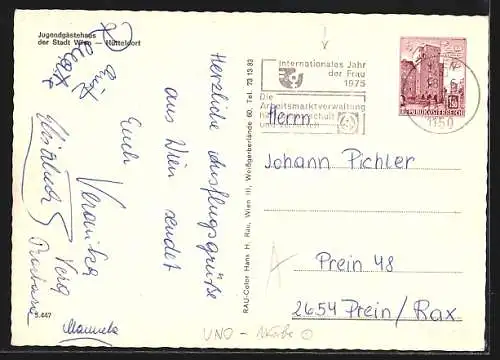 Jugendgästehaus
der Stadt Wien — Hütteldorf
Herzliche Ausflugsgrüße
aus Wien sendet
Euch
Veronika
Vera
Manuela
5.447
RAU-Color Hans H. Rau, Wien III, Weißgerberlände 60, Tel. 73 13 83
Internationales Jahr
der Frau
1975
Die
Arbeitsmarktverwaltung
REPUBLIK ÖSTERREICH
1150
Herrn
Johann Pichler
Prein 48
2654 Prein/Rax
UNO -